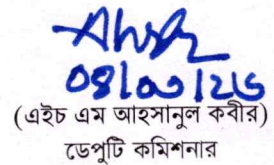 08/03/26
(এইচ এম আহসানুল কবীর)
ডেপুটি কমিশনার